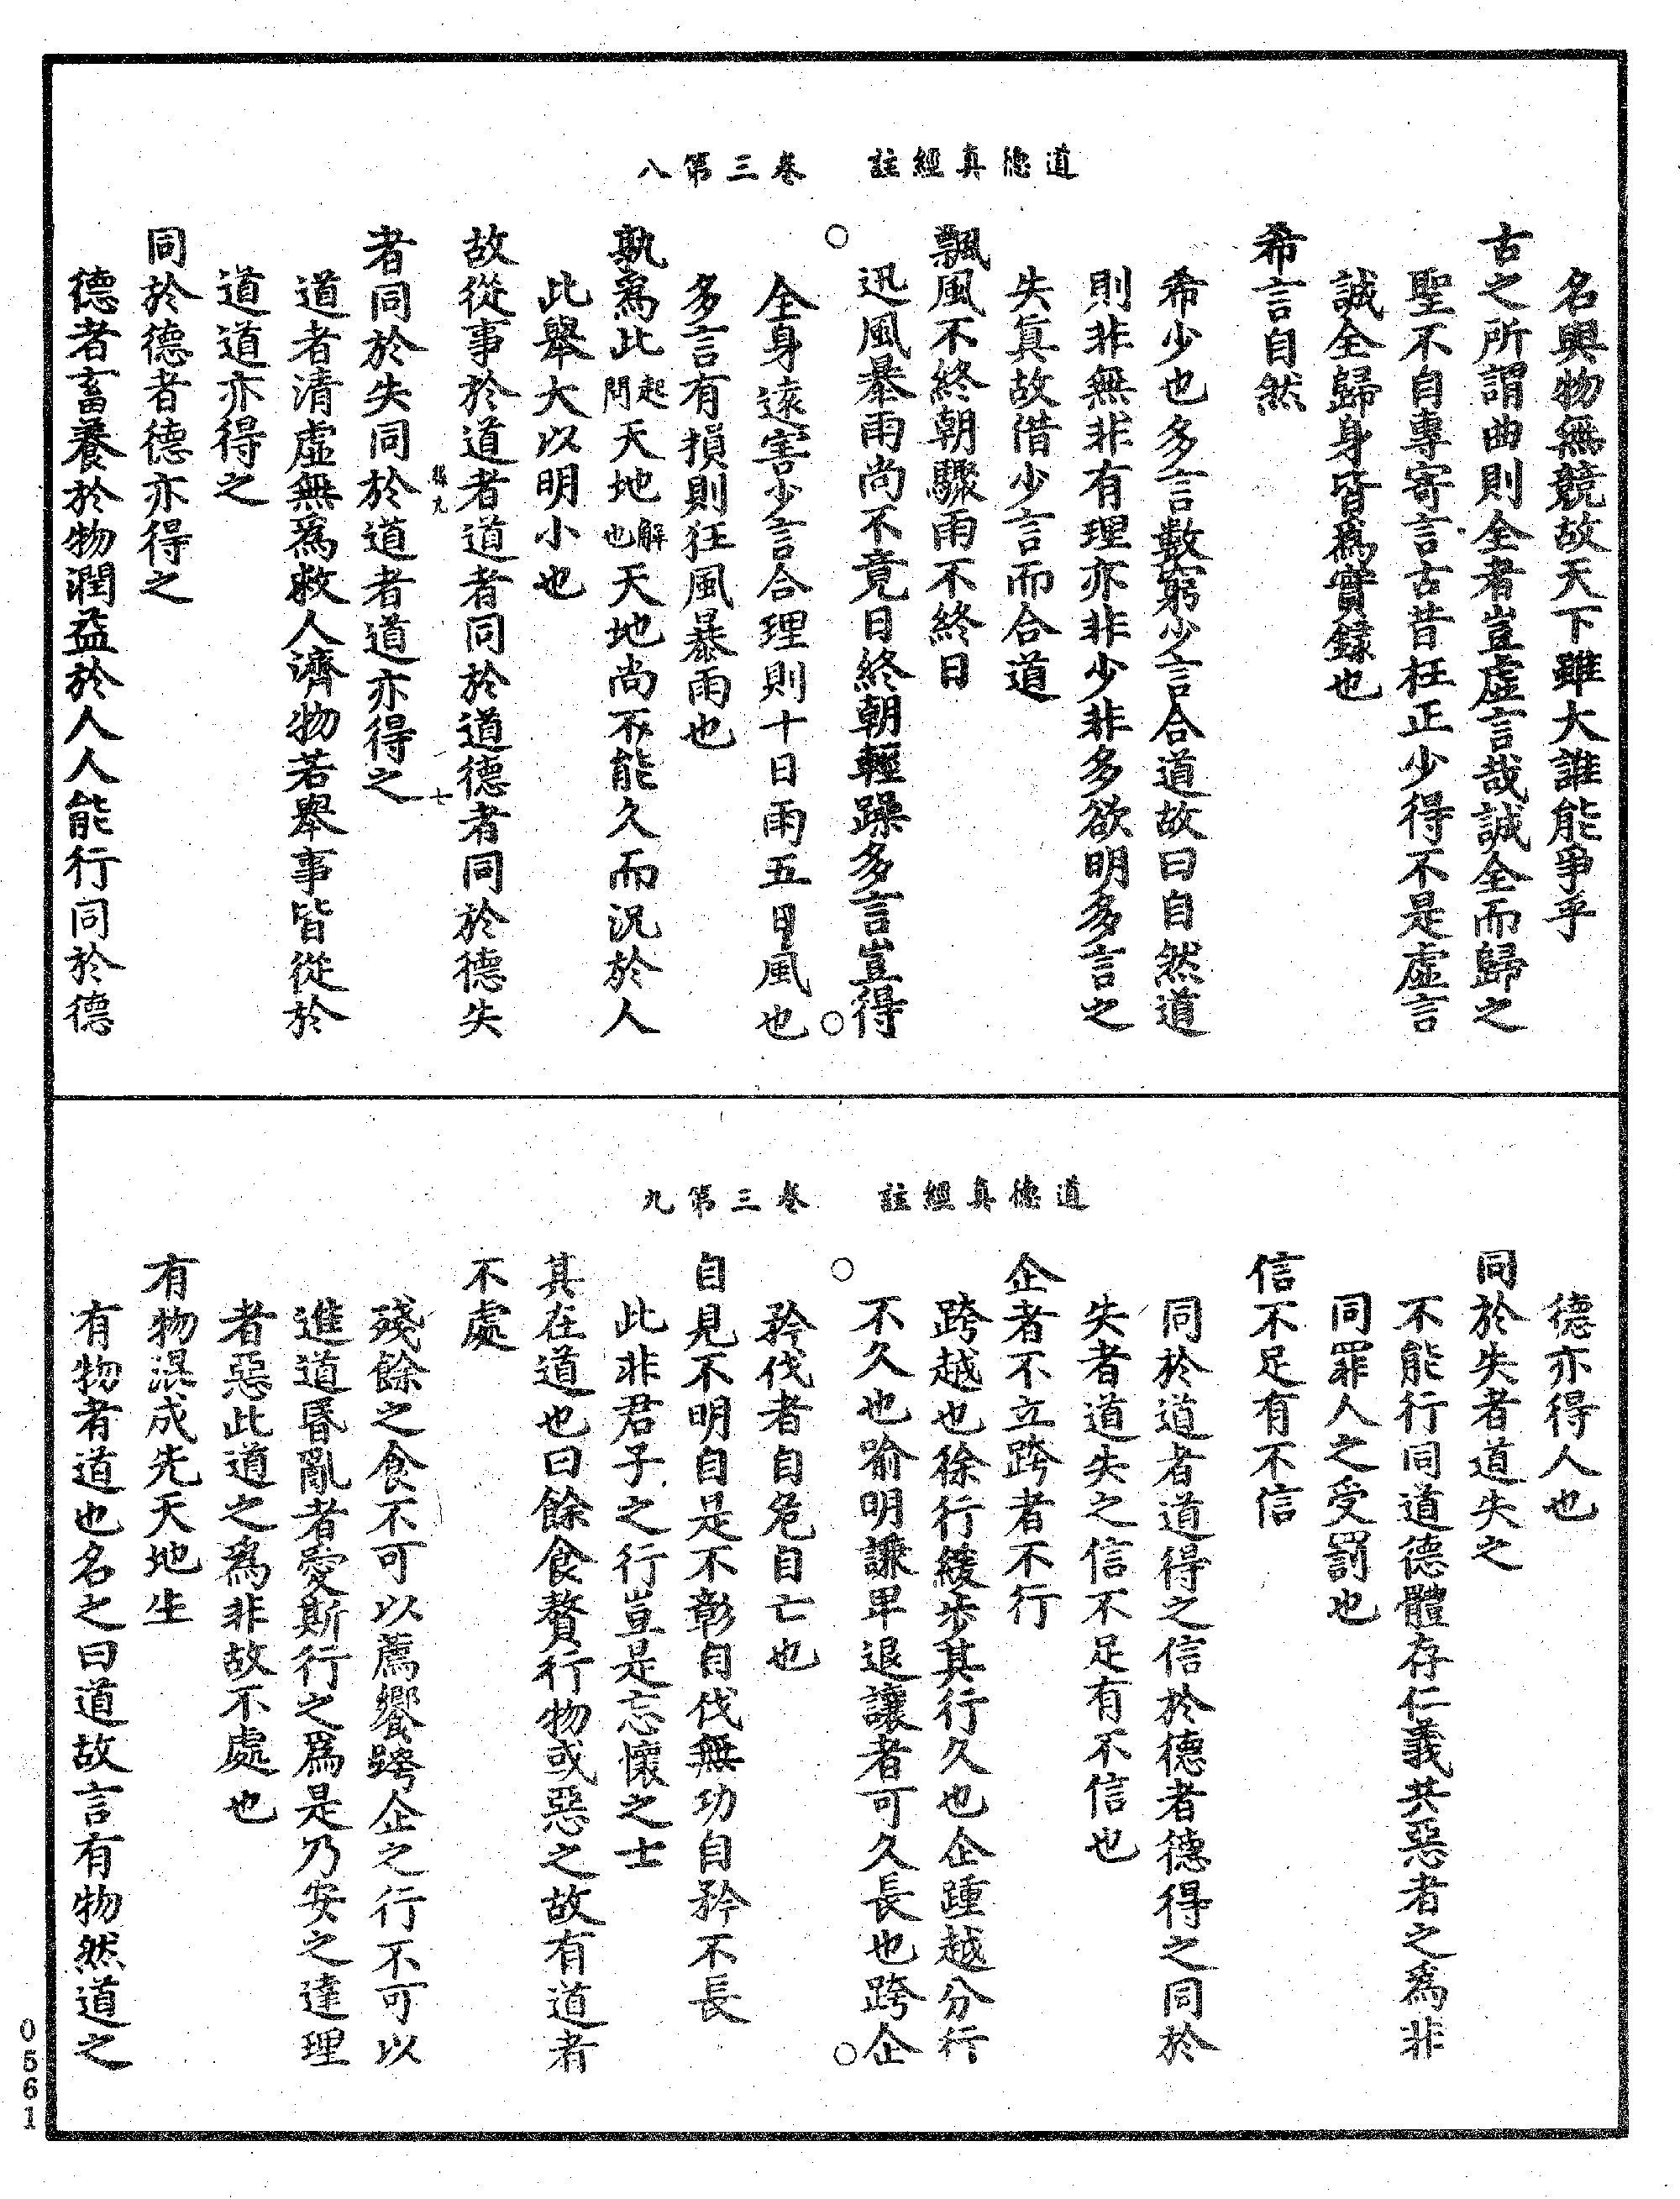 道德真經註　卷三第八
名與物無競故天下雖大誰能爭乎
古之所謂曲則全者豈虛言哉誠全而歸之
聖不自專寄言古昔枉正少得不是虛言
誠全歸身皆爲實錄也
希言自然
希少也多言數窮少言合道故曰自然道
則非無非有理亦非少非多欲明多言之
失真故借少言而合道
飄風不終朝驟雨不終日
迅風暴雨尚不竟日終朝輕躁多言豈得
全身遠害少言合理則十日雨五日風也
多言有損則狂風暴雨也
孰爲此起問天地解也天地尚不能久而況於人
此舉大以明小也
故從事於道者道者同於道德者同於德失
七
者同於失同於道者道亦得之
道者清虛無爲救人濟物若舉事皆從於
道道亦得之
同於德者德亦得之
德者畜養於物潤益於人人能行同於德
道德真經註　卷三第九
德亦得人也
同於失者道失之
不能行同道德體存仁義共惡者之爲非
同罪人之受罰也
信不足有不信
同於道者道得之信於德者德得之同於
失者道失之信不足有不信也
企者不立跨者不行
跨越也徐行緩步其行久也企踵越分行
不久也喻明謙卑退讓者可久長也跨企
矜伐者自危自亡也
自見不明自是不彰自伐無功自矜不長
此非君子之行豈是忘懷之士
其在道也曰餘食贅行物或惡之故有道者
不處
殘餘之食不可以薦饗跨企之行不可以
進道昏亂者愛斯行之爲是乃安之達理
者惡此道之爲非故不處也
有物混成先天地生
有物者道也名之曰道故言有物然道之
0561